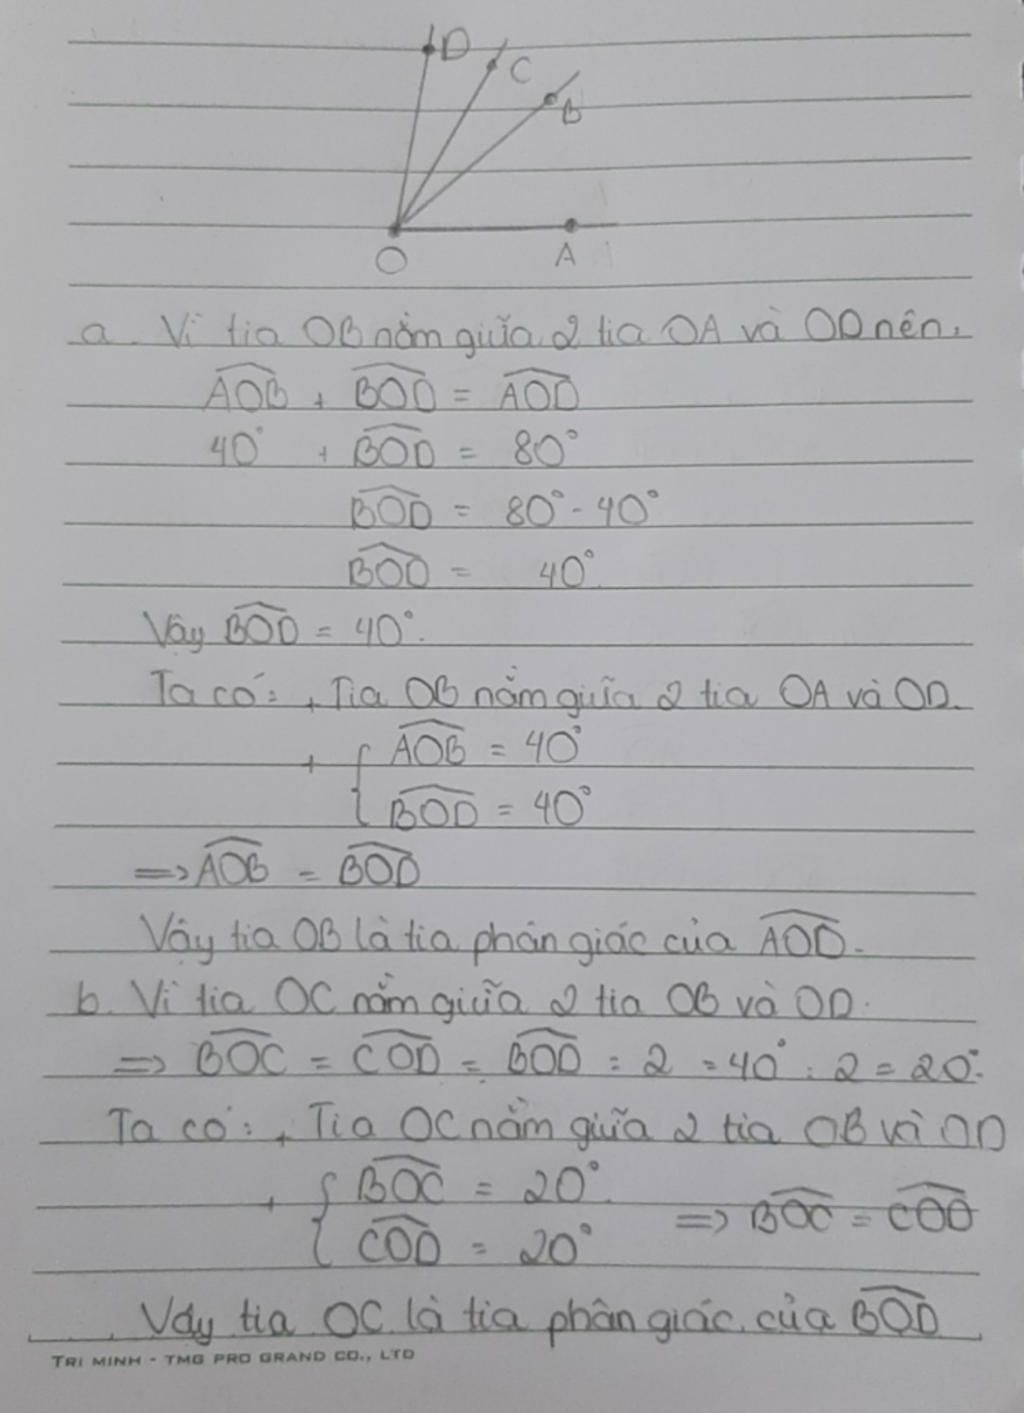 D
C
B
O
A
a. Vì tia OB nằm giữa 2 tia OA và OD nên.
AOB + BOD = AOD
40° + BOD = 80°
BOD = 80° - 40°
BOD = 40°.
Vậy BOD = 40°.
Ta có: + Tia OB nằm giữa 2 tia OA và OD.
+ { AOB = 40°
BOD = 40°
=> AOB = BOD
Vậy tia OB là tia phân giác của AOD.
b. Vì tia OC nằm giữa 2 tia OB và OD.
=> BOC = COD = BOD : 2 = 40° : 2 = 20°.
Ta có: + Tia OC nằm giữa 2 tia OB và OD
+ { BOC = 20°. => BOC = COD
COD = 20°
Vậy tia OC là tia phân giác của BOD
TRI MINH - TMG PRO GRAND CO., LTD